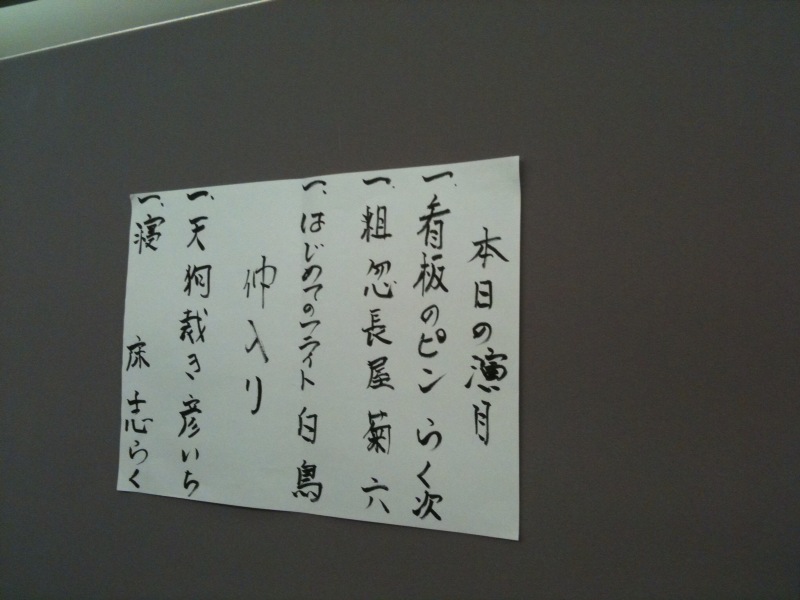 本日の演目
一、看板のピン らく次
一、粗忽長屋 菊六
一、はじめてのフライト 白鳥
仲入り
一、天狗裁き 彦いち
一、寝床 志らく